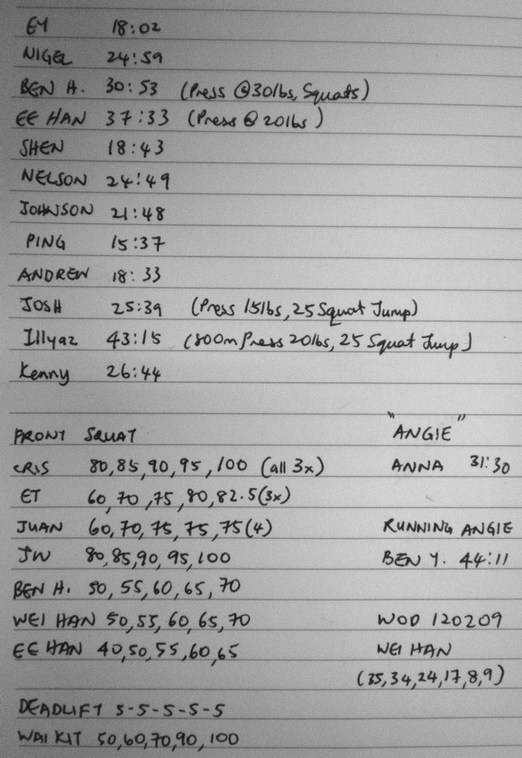 EY 18:02
NIGEL 24:59
BEN H. 30:53 (Press @30lbs, Squats)
EE HAN 37:33 (Press @ 20lbs)
SHEN 18:43
NELSON 24:49
JOHNSON 21:48
PING 15:37
ANDREW 18:33
JOSH 25:39 (Press 15lbs, 25 Squat Jump)
Illyaz 43:15 (800m Press 20lbs, 25 Squat Jump)
Kenny 26:44
FRONT SQUAT
CRIS 80,85,90,95,100 (all 3x)
ET 60,70,75,80,82.5(3x)
JUAN 60,70,75,75,75(4)
JW 80,85,90,95,100
BEN H. 50,55,60,65,70
WEI HAN 50,55,60,65,70
EE HAN 40,50,55,60,65
DEADLIFT 5-5-5-5-5
WAI KIT 50,60,70,90,100
"ANGIE"
ANNA 31:30
RUNNING ANGIE
BEN Y. 44:11
WOD 120209
WEI HAN
(35,34,24,17,8,9)